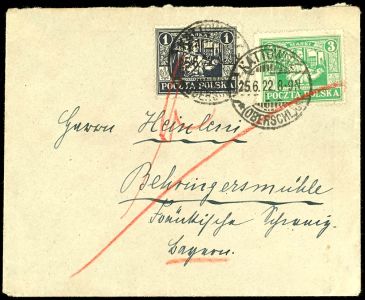 1 1
POCZTA POLSKA
3
POCZTA POLSKA
KATTOWITZ
25.6.22.8-9V.
(OBERSCHL.)
Herrn Heinlein
Behringersmühle
Fränkische Schweiz.
Bayern.